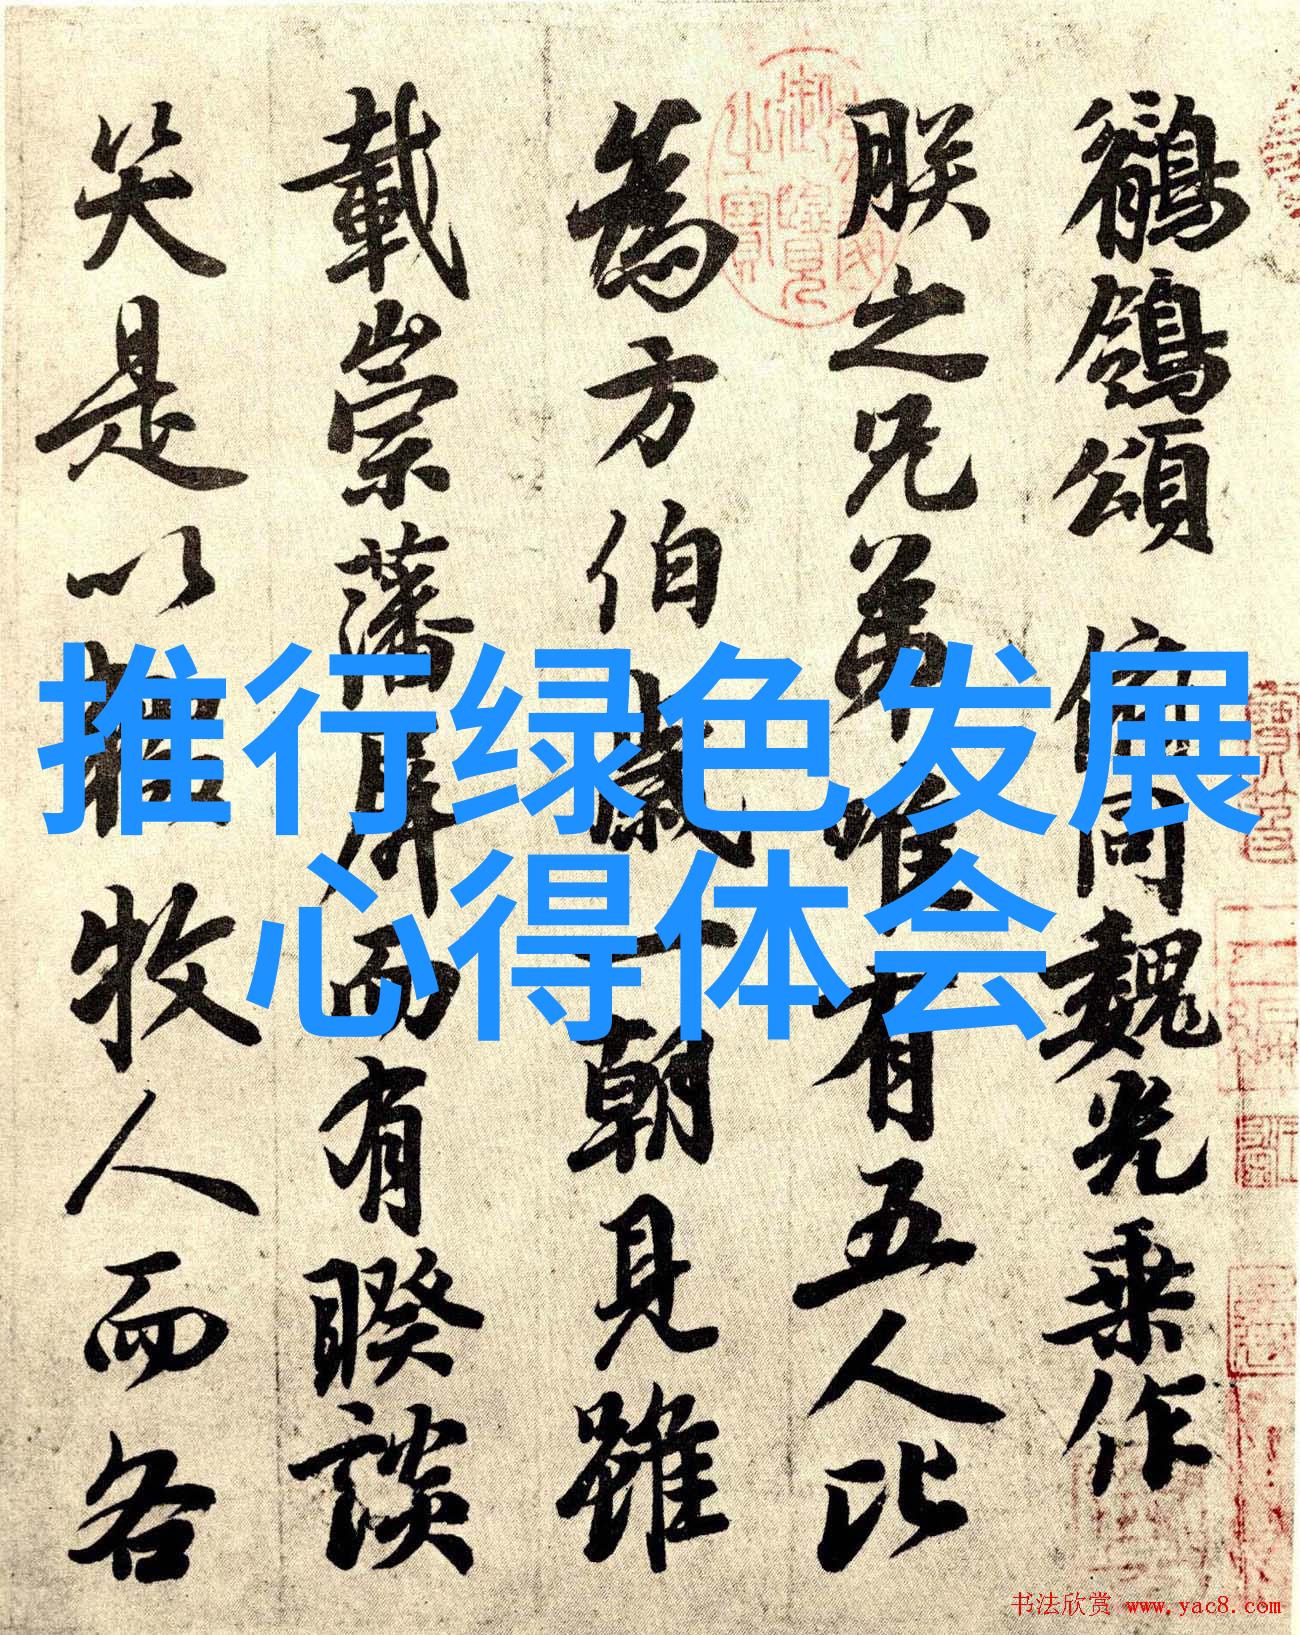 推行绿色发展
心得体会
鶺鴒頌 俯同魏光乘作
朕之兄弟唯有五人比
為方伯歲一朝見雖
載崇藩屏而有睽談
笑是以輟牧人而各
书法欣赏 www.yac8.com